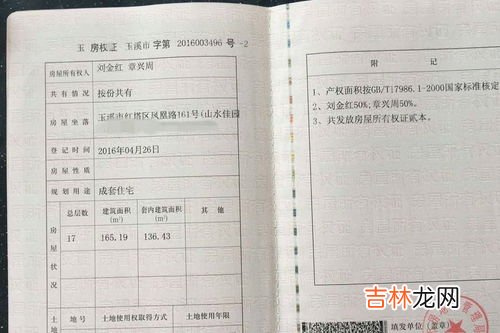 玉 房权证 玉溪市 字第 2016003496 号 -2
房屋所有权人 刘金红 章兴周
共有情况 按份共有
房屋坐落 玉溪市红塔区凤凰路161号(山水佳园
登记时间 2016年04月26日
房屋性质
规划用途 成套住宅
房屋状况 总层数 建筑面积(m²) 套内建筑面积(m²) 其他
17 165.19 136.43
土地 地号 土地使用权取得方式 土地使用年限
附 记
1、产权面积按GB/T17986.1-2000国家标准核定
2、刘金红50%;章兴周50%。
3、共发放房屋所有权证贰本。
填发单位(盖章)
吉林龙网